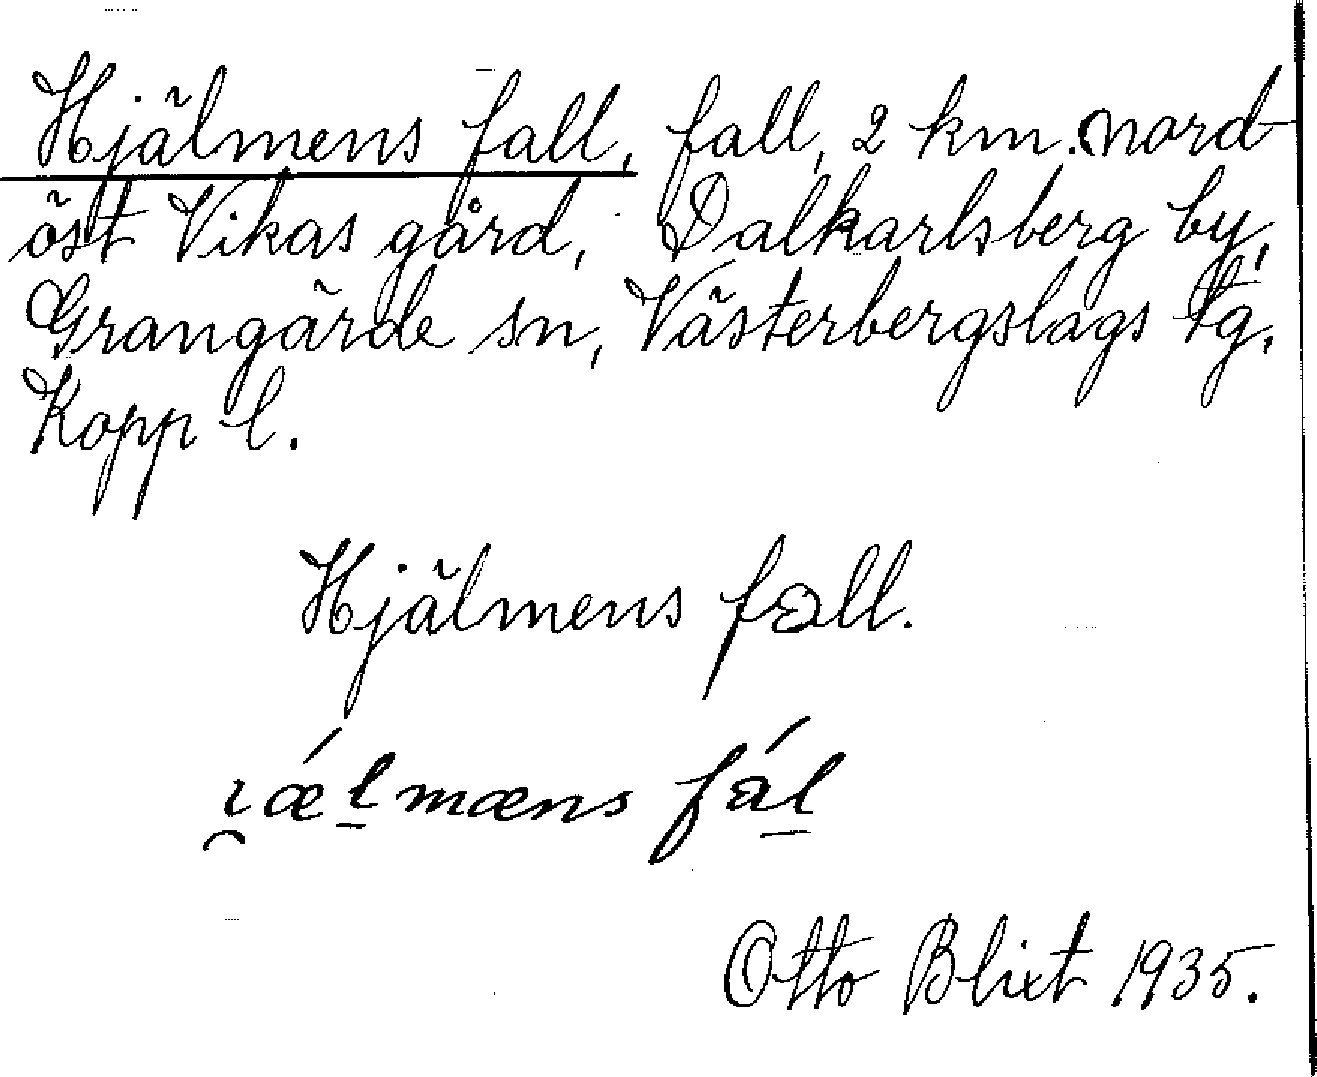 Hjälmens fall, fall, 2 km. nord
öst Vikas gård, Dalkarlsberg by,
Grangärde sn, Västerbergslags tg,
Kopp l.
Hjälmens fall.
ı̯ǽl̠mæns fál̠
Otto Blixt 1935.